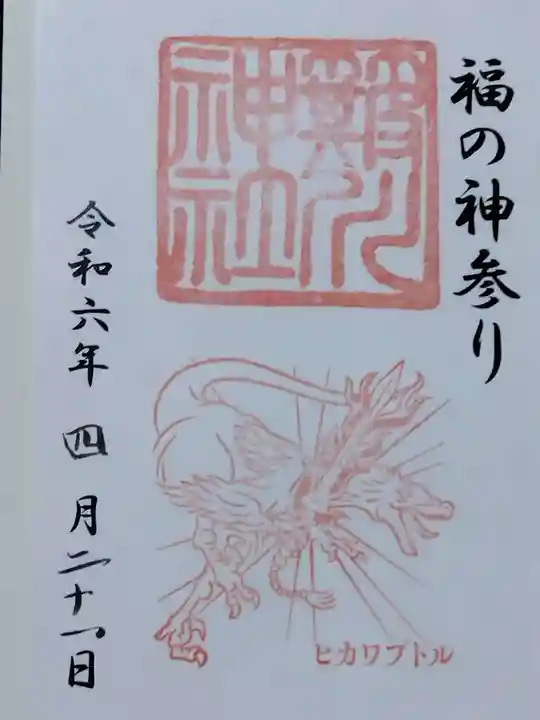 福の神参り
簸川
神社
令和六年 四月二十一日
ヒカワプトル